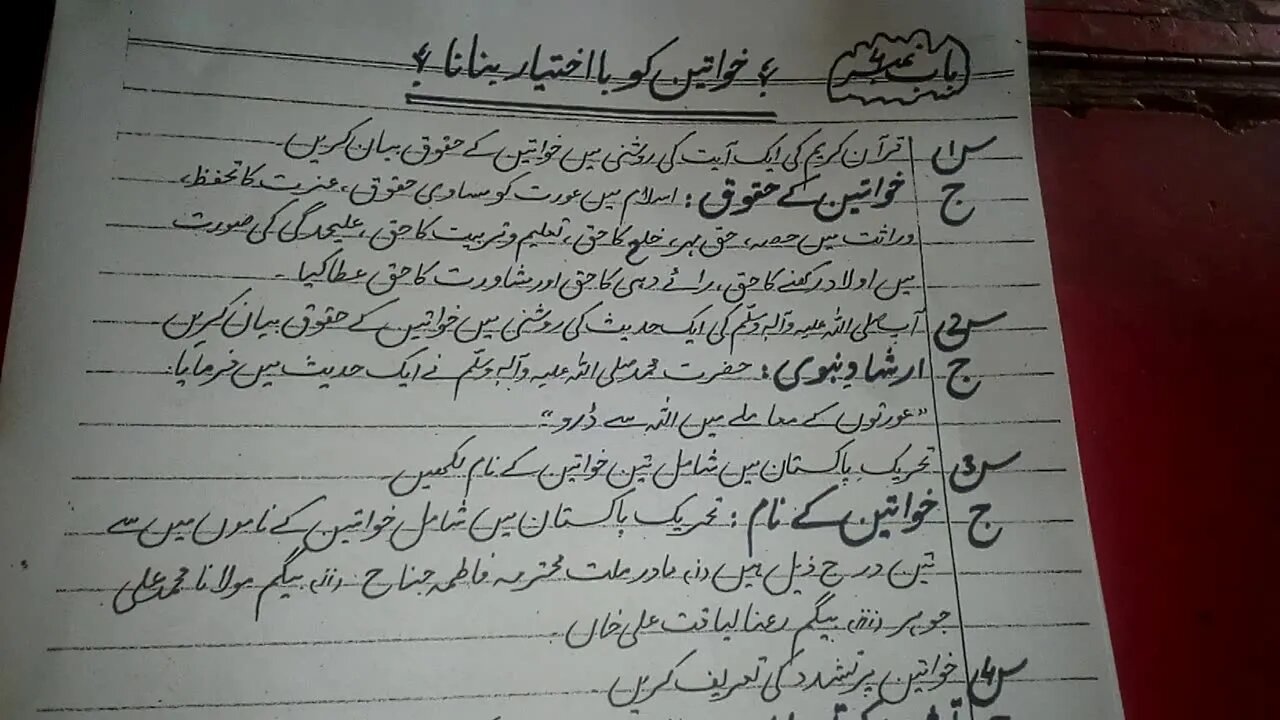 باب نمبر 4 ﴿ خواتین کو بااختیار بنانا ﴾
س1 قرآن کریم کی ایک آیت کی روشنی میں خواتین کے حقوق بیان کریں۔
ج خواتین کے حقوق: اسلام میں عورت کو مساوی حقوق، عزت کا تحفظ،
وراثت میں حصہ، حق مہر، خلع کا حق، تعلیم و تربیت کا حق، علیحدگی کی صورت
میں اولاد رکھنے کا حق، رائے دہی کا حق اور مشاورت کا حق عطا کیا۔
س2 آپ صلی اللہ علیہ وآلہ وسلّم کی ایک حدیث کی روشنی میں خواتین کے حقوق بیان کریں
ج ارشادِ نبوی: حضرت محمد صلی اللہ علیہ وآلہ وسلّم نے ایک حدیث میں فرمایا:
"عورتوں کے معاملے میں اللہ سے ڈرو"
س3 تحریکِ پاکستان میں شامل تین خواتین کے نام لکھیں۔
ج خواتین کے نام: تحریک پاکستان میں شامل خواتین کے ناموں میں سے
تین درج ذیل ہیں (i) مادر ملت محترمہ فاطمہ جناح (ii) بیگم مولانا محمد علی
جوہر (iii) بیگم رعنا لیاقت علی خاں۔
س4 خواتین پر تشدد کی تعریف کریں۔